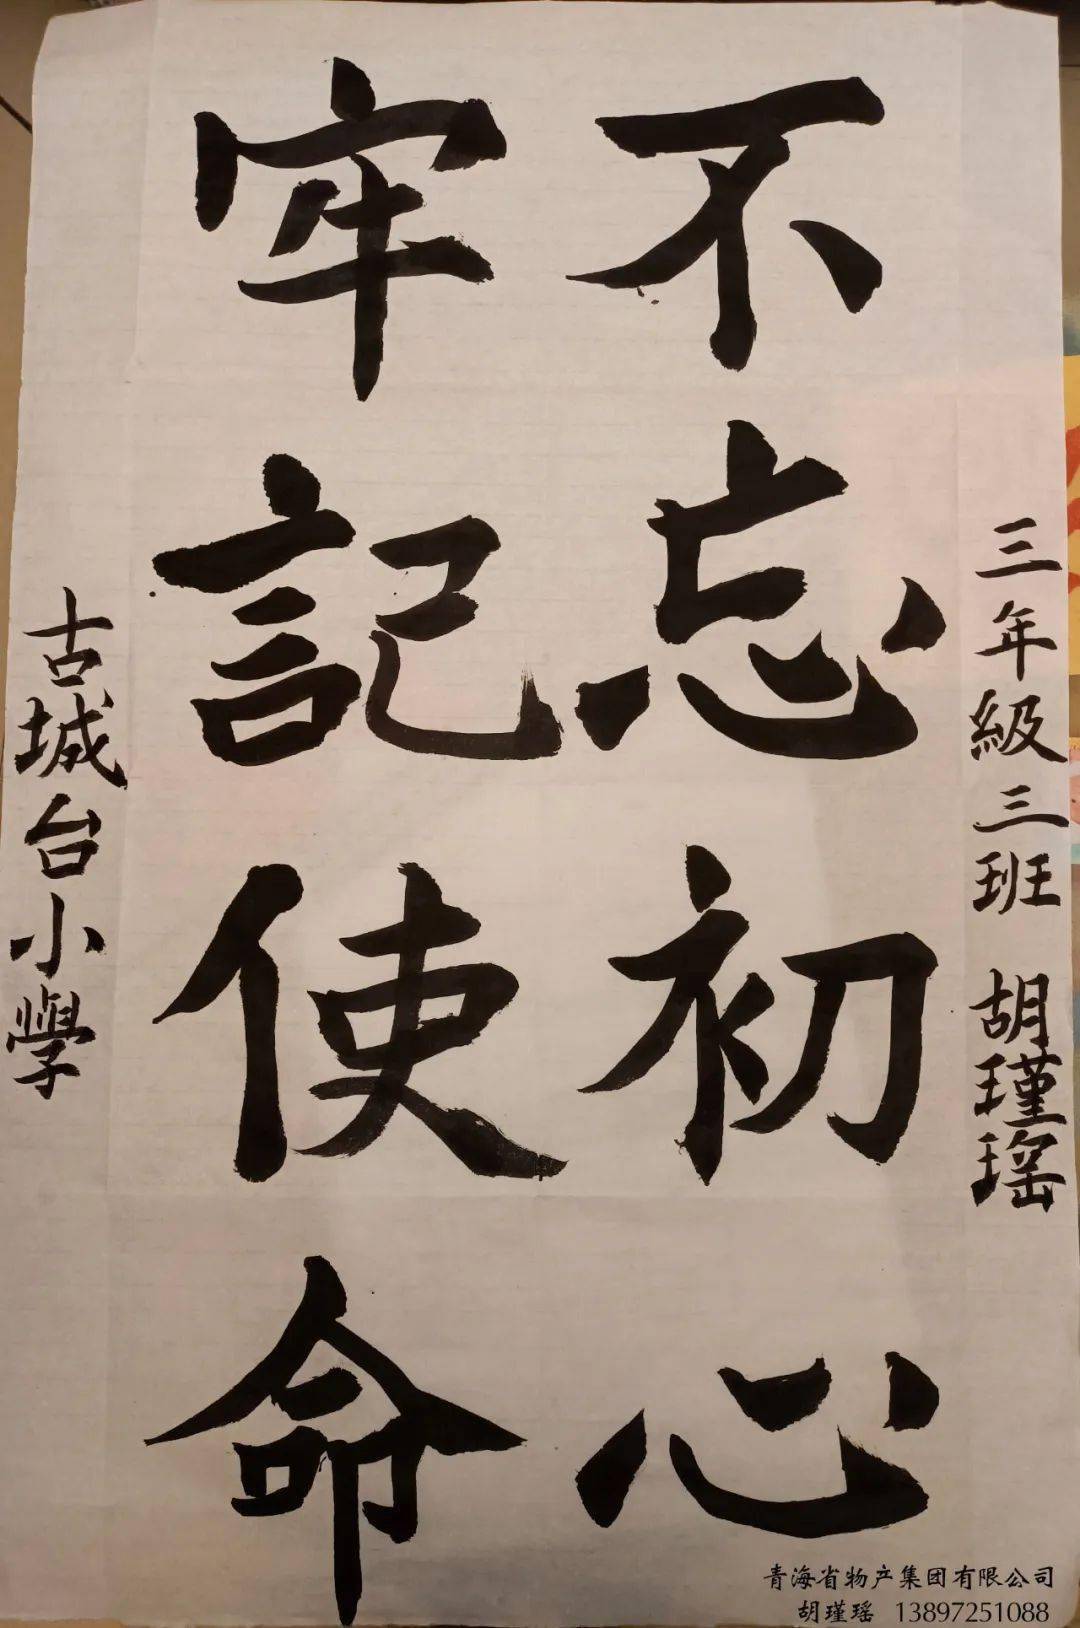 三年級三班 胡瑾瑶
不忘初心
牢記使命
古城台小學
青海省物产集团有限公司
胡瑾瑶 13897251088